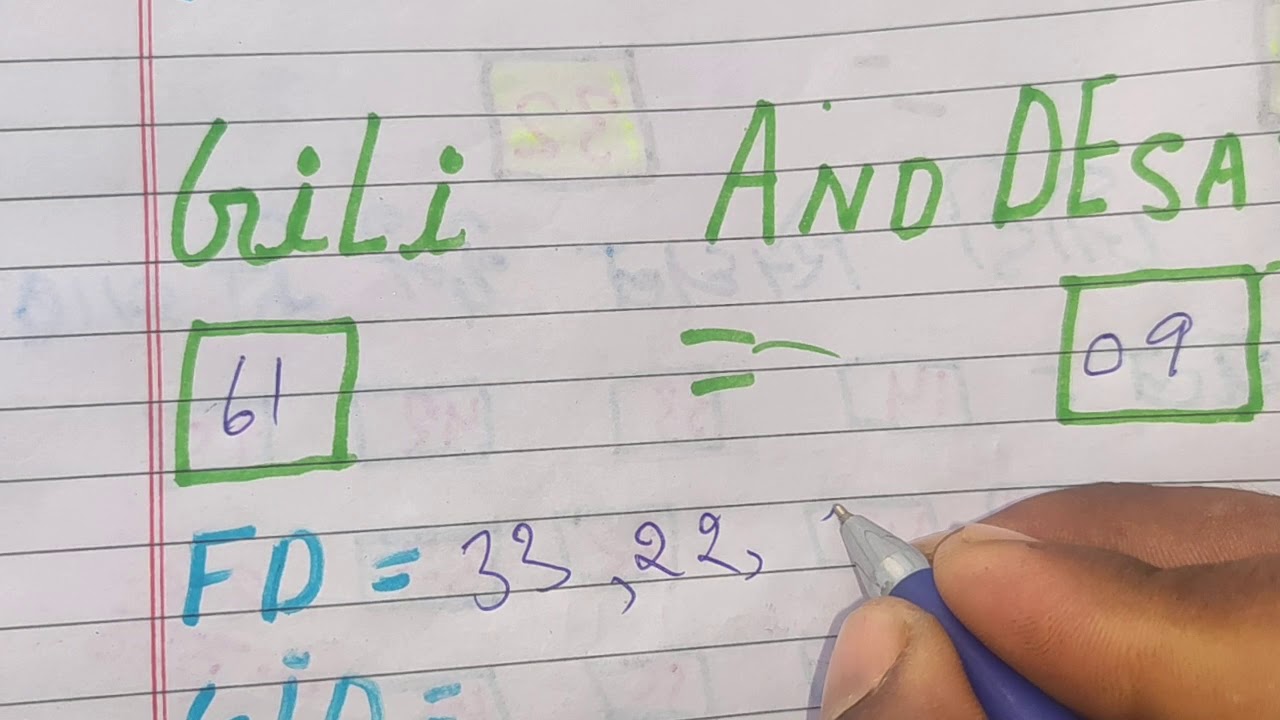 GiLi AND DESA
61 = 09
FD = 33, 22,